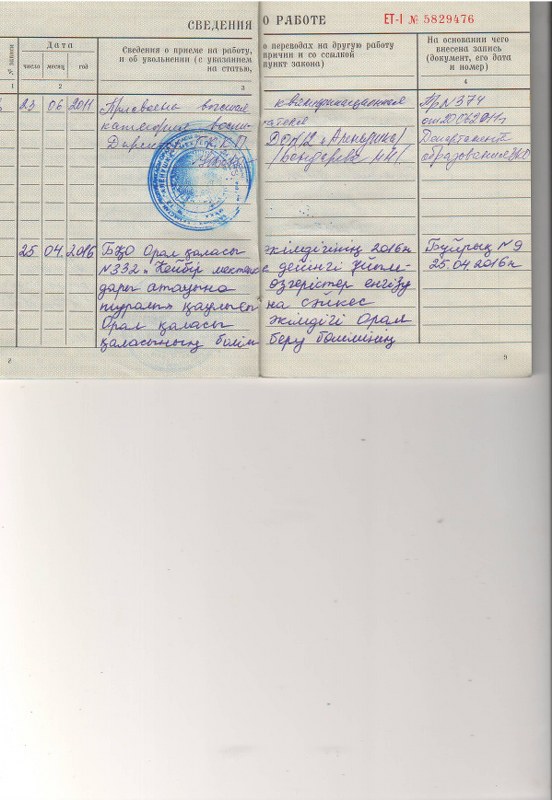 СВЕДЕНИЯ О РАБОТЕ ЕТ-I № 5829476
№ записи
Дата
число месяц год
Сведения о приеме на работу, о переводах на другую работу
и об увольнении (с указанием причин и со ссылкой
на статью, пункт закона)
На основании чего
внесена запись
(документ, его дата
и номер)
1 2 3 4
23 06 2011 Присвоена высшая квалификационная Пр N 374
категория воспитателя от 20.06.2011г
Директор ГККП ДОУ № 12 "Айналайын" Департамент
/Бондарева НН/ образования ЗКО
25.04.2016 БҚО Орал қаласы әкімдігінің 2016ж Бұйрық N 9
N332 "Кейбір мектепке дейінгі ұйым- 25.04.2016ж
дары атауына өзгерістер енгізу
туралы" қаулысына сәйкес
Орал қаласы әкімдігі Орал
қаласының білім беру бөлімінің
9